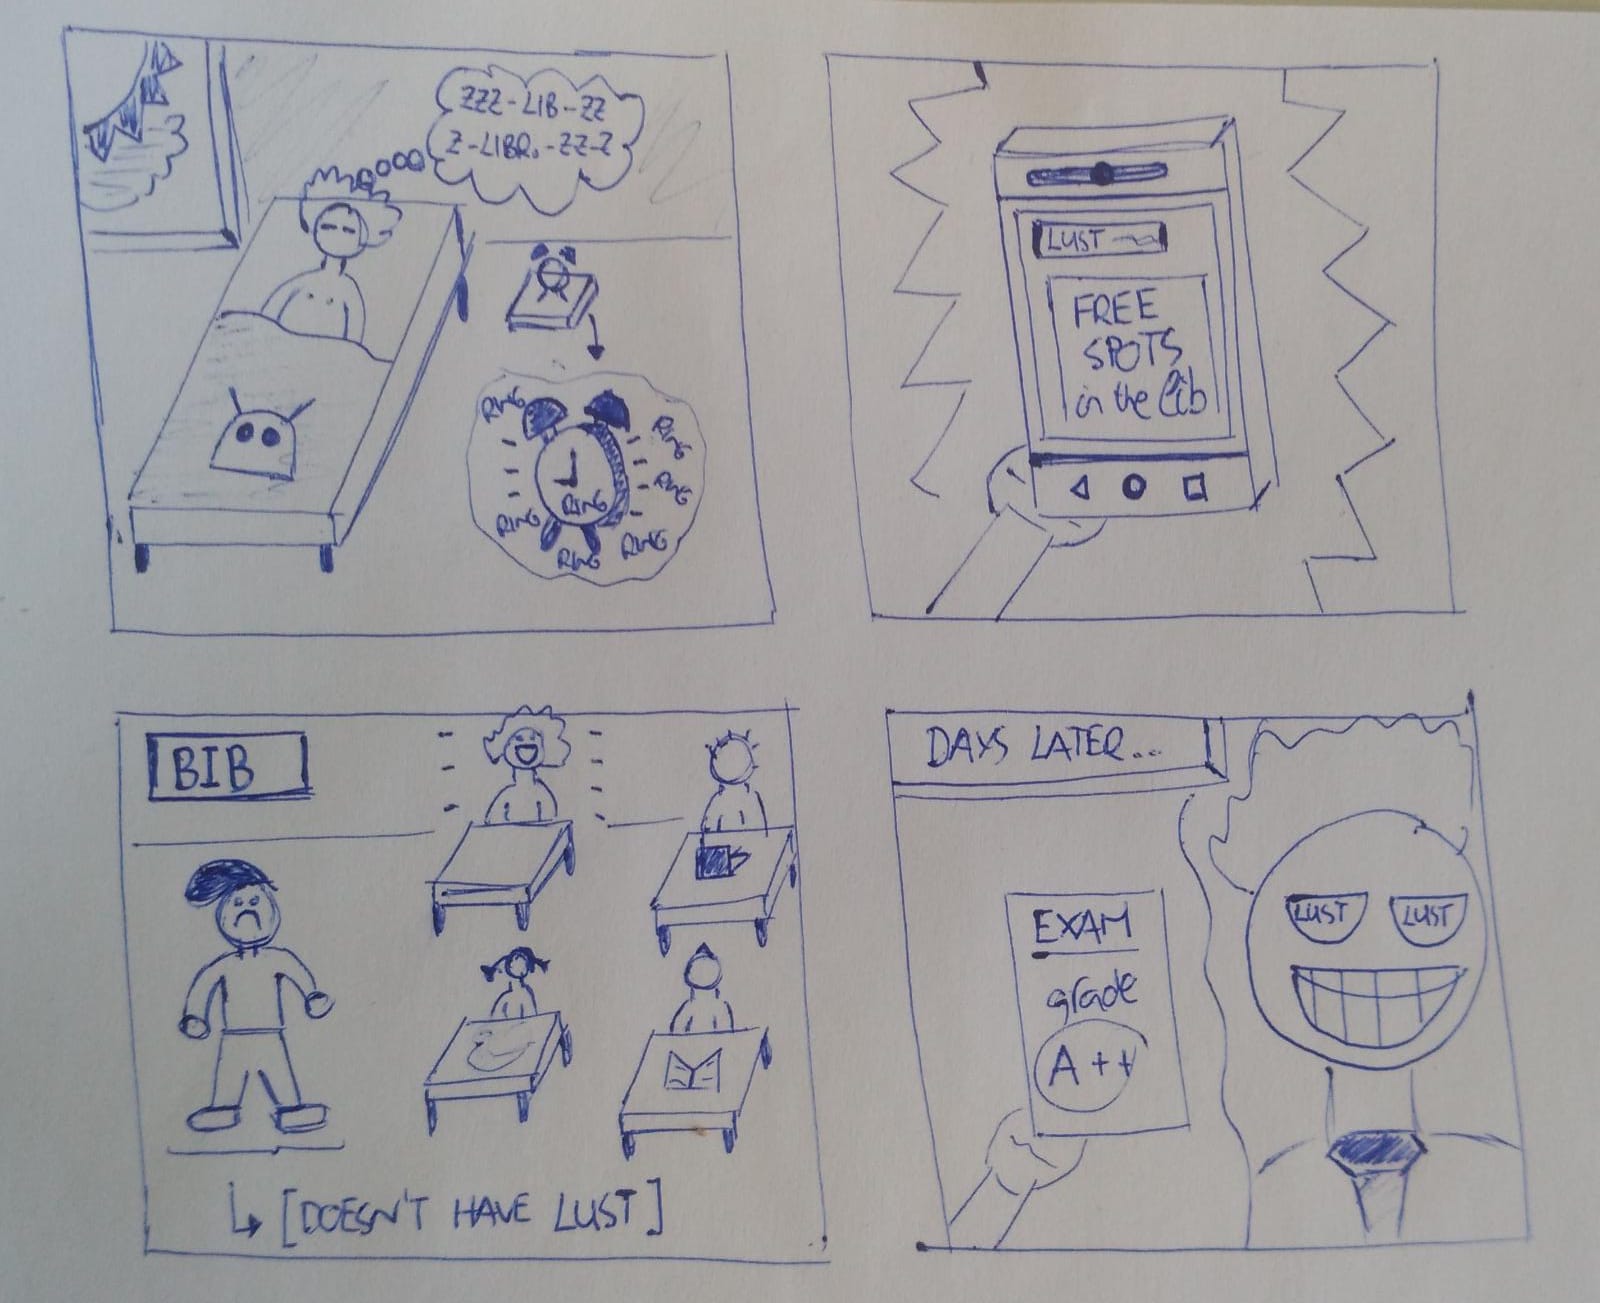 ZZZ-LIB-ZZ
Z-LIBR.-ZZ-Z
RING
RING
RING
RING
RING
RING
RING
LUST
FREE
SPOTS
in the lib
BIB
[DOESN'T HAVE LUST]
DAYS LATER...
EXAM
grade
A++
LUST LUST